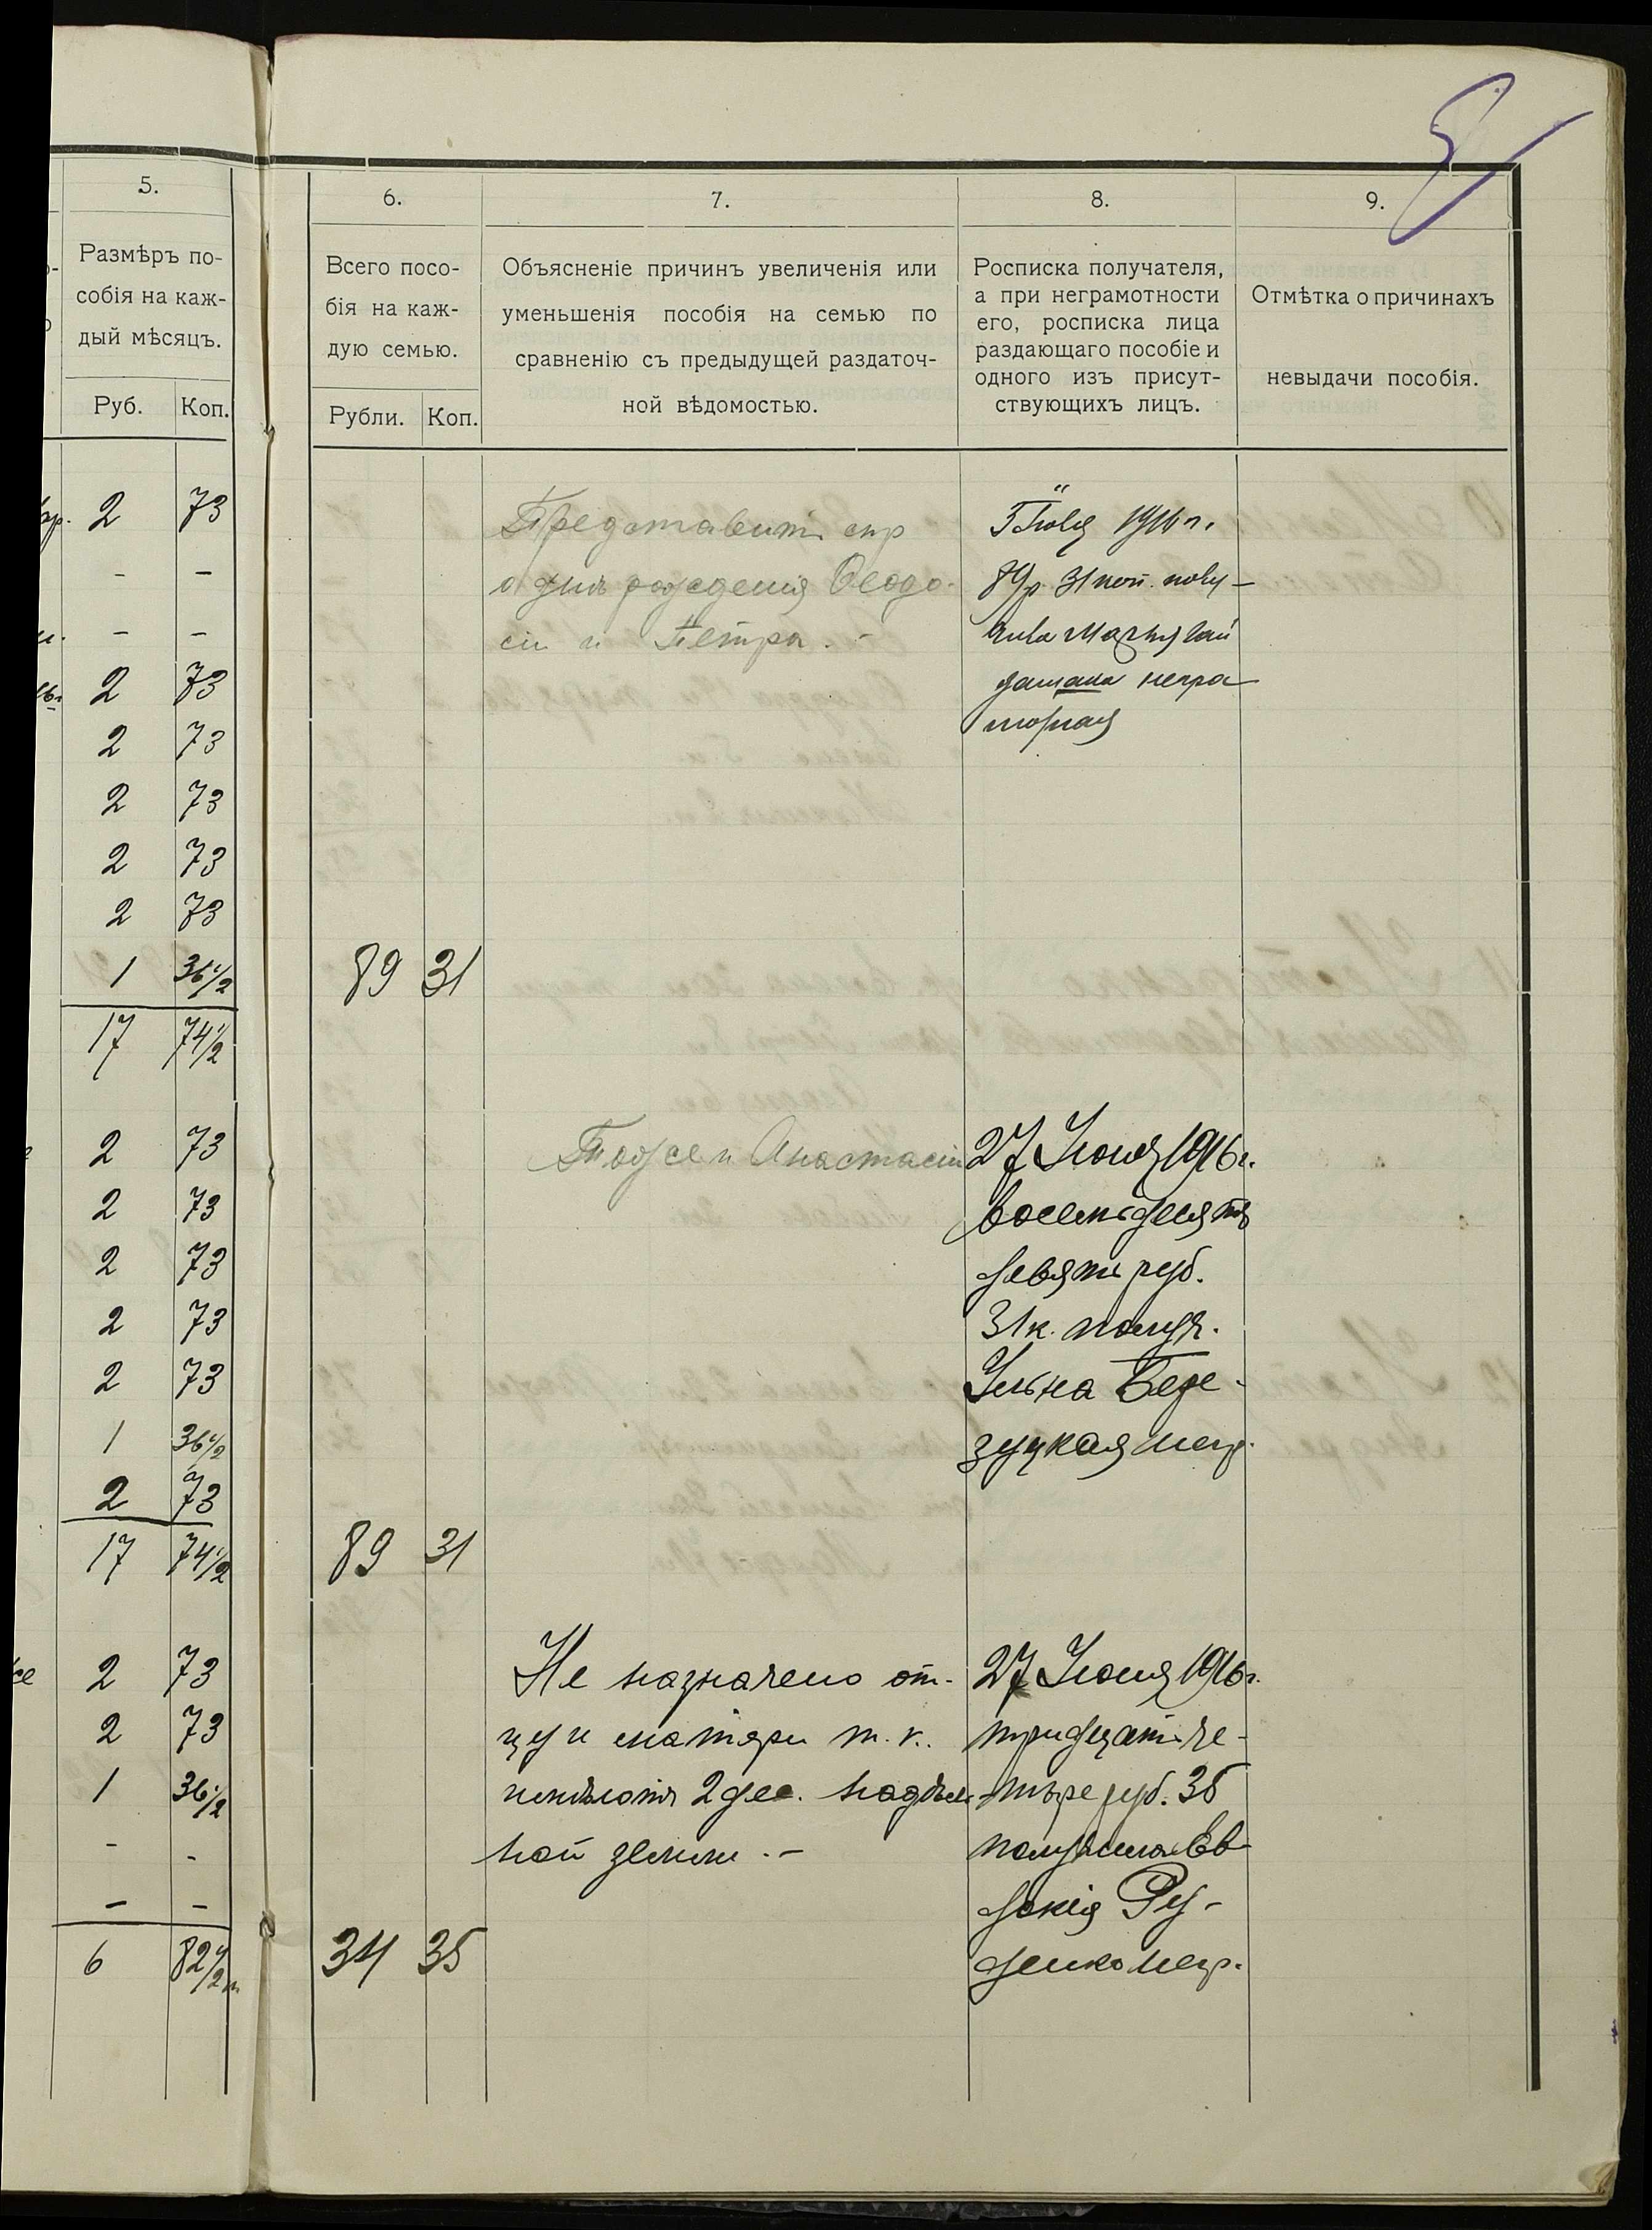 8
5.
Размѣръ по-
собія на каж-
дый мѣсяцъ.
Руб. Коп.
6.
Всего посо-
бія на каж-
дую семью.
Рубли. Коп.
7.
Объясненіе причинъ увеличенія или
уменьшенія пособія на семью по
сравненію съ предыдущей раздаточ-
ной вѣдомостью.
8.
Росписка получателя,
а при неграмотности
его, росписка лица
раздающаго пособіе и
одного изъ присут-
ствующихъ лицъ.
9.
Отмѣтка о причинахъ
невыдачи пособія.
2 73
- -
- -
2 73
2 73
2 73
2 73
2 73
1 36 1/2
17 74 1/2
89 31
Представить спр
о дня рожденія Ѳеодо-
сіи и Петра. -
1916 г.
89 р. 31 коп. полу-
чила
негра-
мотная
2 73
2 73
2 73
2 73
2 73
1 36 1/2
2 73
17 74 1/2
89 31
Тоже и Анастасіи
27 Іюня 1916 г.
восемьдесятъ
девять руб.
31 к. получ.
Ульяна Бере-
зуцкая негр.
2 73
2 73
1 36 1/2
- -
- -
6 82 1/2
34 35
Не назначено от-
цу и матери т. к.
имѣютъ 2 дес. надѣль
ной земли. -
27 Іюня 1916 г.
тридцать че-
тыре руб. 35
получила Ев-
докія Ру-
денко негр.